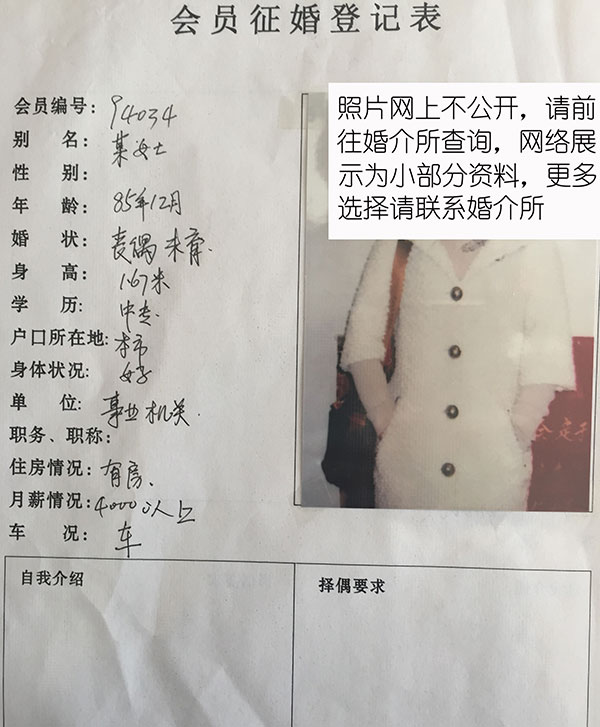 会员征婚登记表
会员编号：94034
别 名：某女士
性 别：
年 龄：85年12月
婚 状：丧偶 未育.
身 高：1.67米
学 历：中专.
户口所在地：本市
身体状况：好
单 位：事业机关.
职务、职称：
住房情况：有房.
月薪情况：4000以上
车 况：车
照片网上不公开，请前
往婚介所查询，网络展
示为小部分资料，更多
选择请联系婚介所
自我介绍
择偶要求